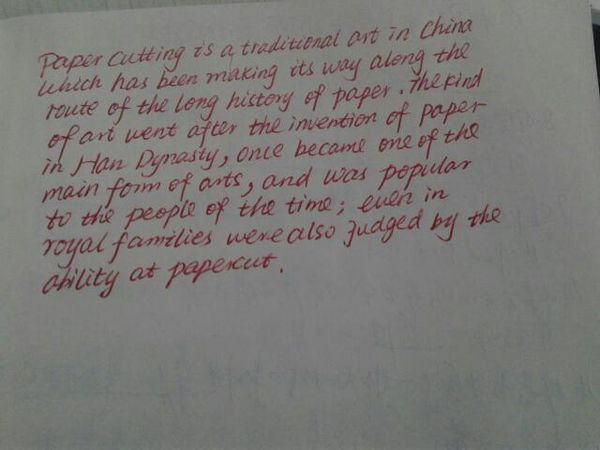 Paper cutting is a traditional art in China
which has been making its way along the
route of the long history of paper. The kind
of art went after the invention of paper
in Han Dynasty, once became one of the
main form of arts, and was popular
to the people of the time; even in
royal families were also judged by the
ability at papercut.